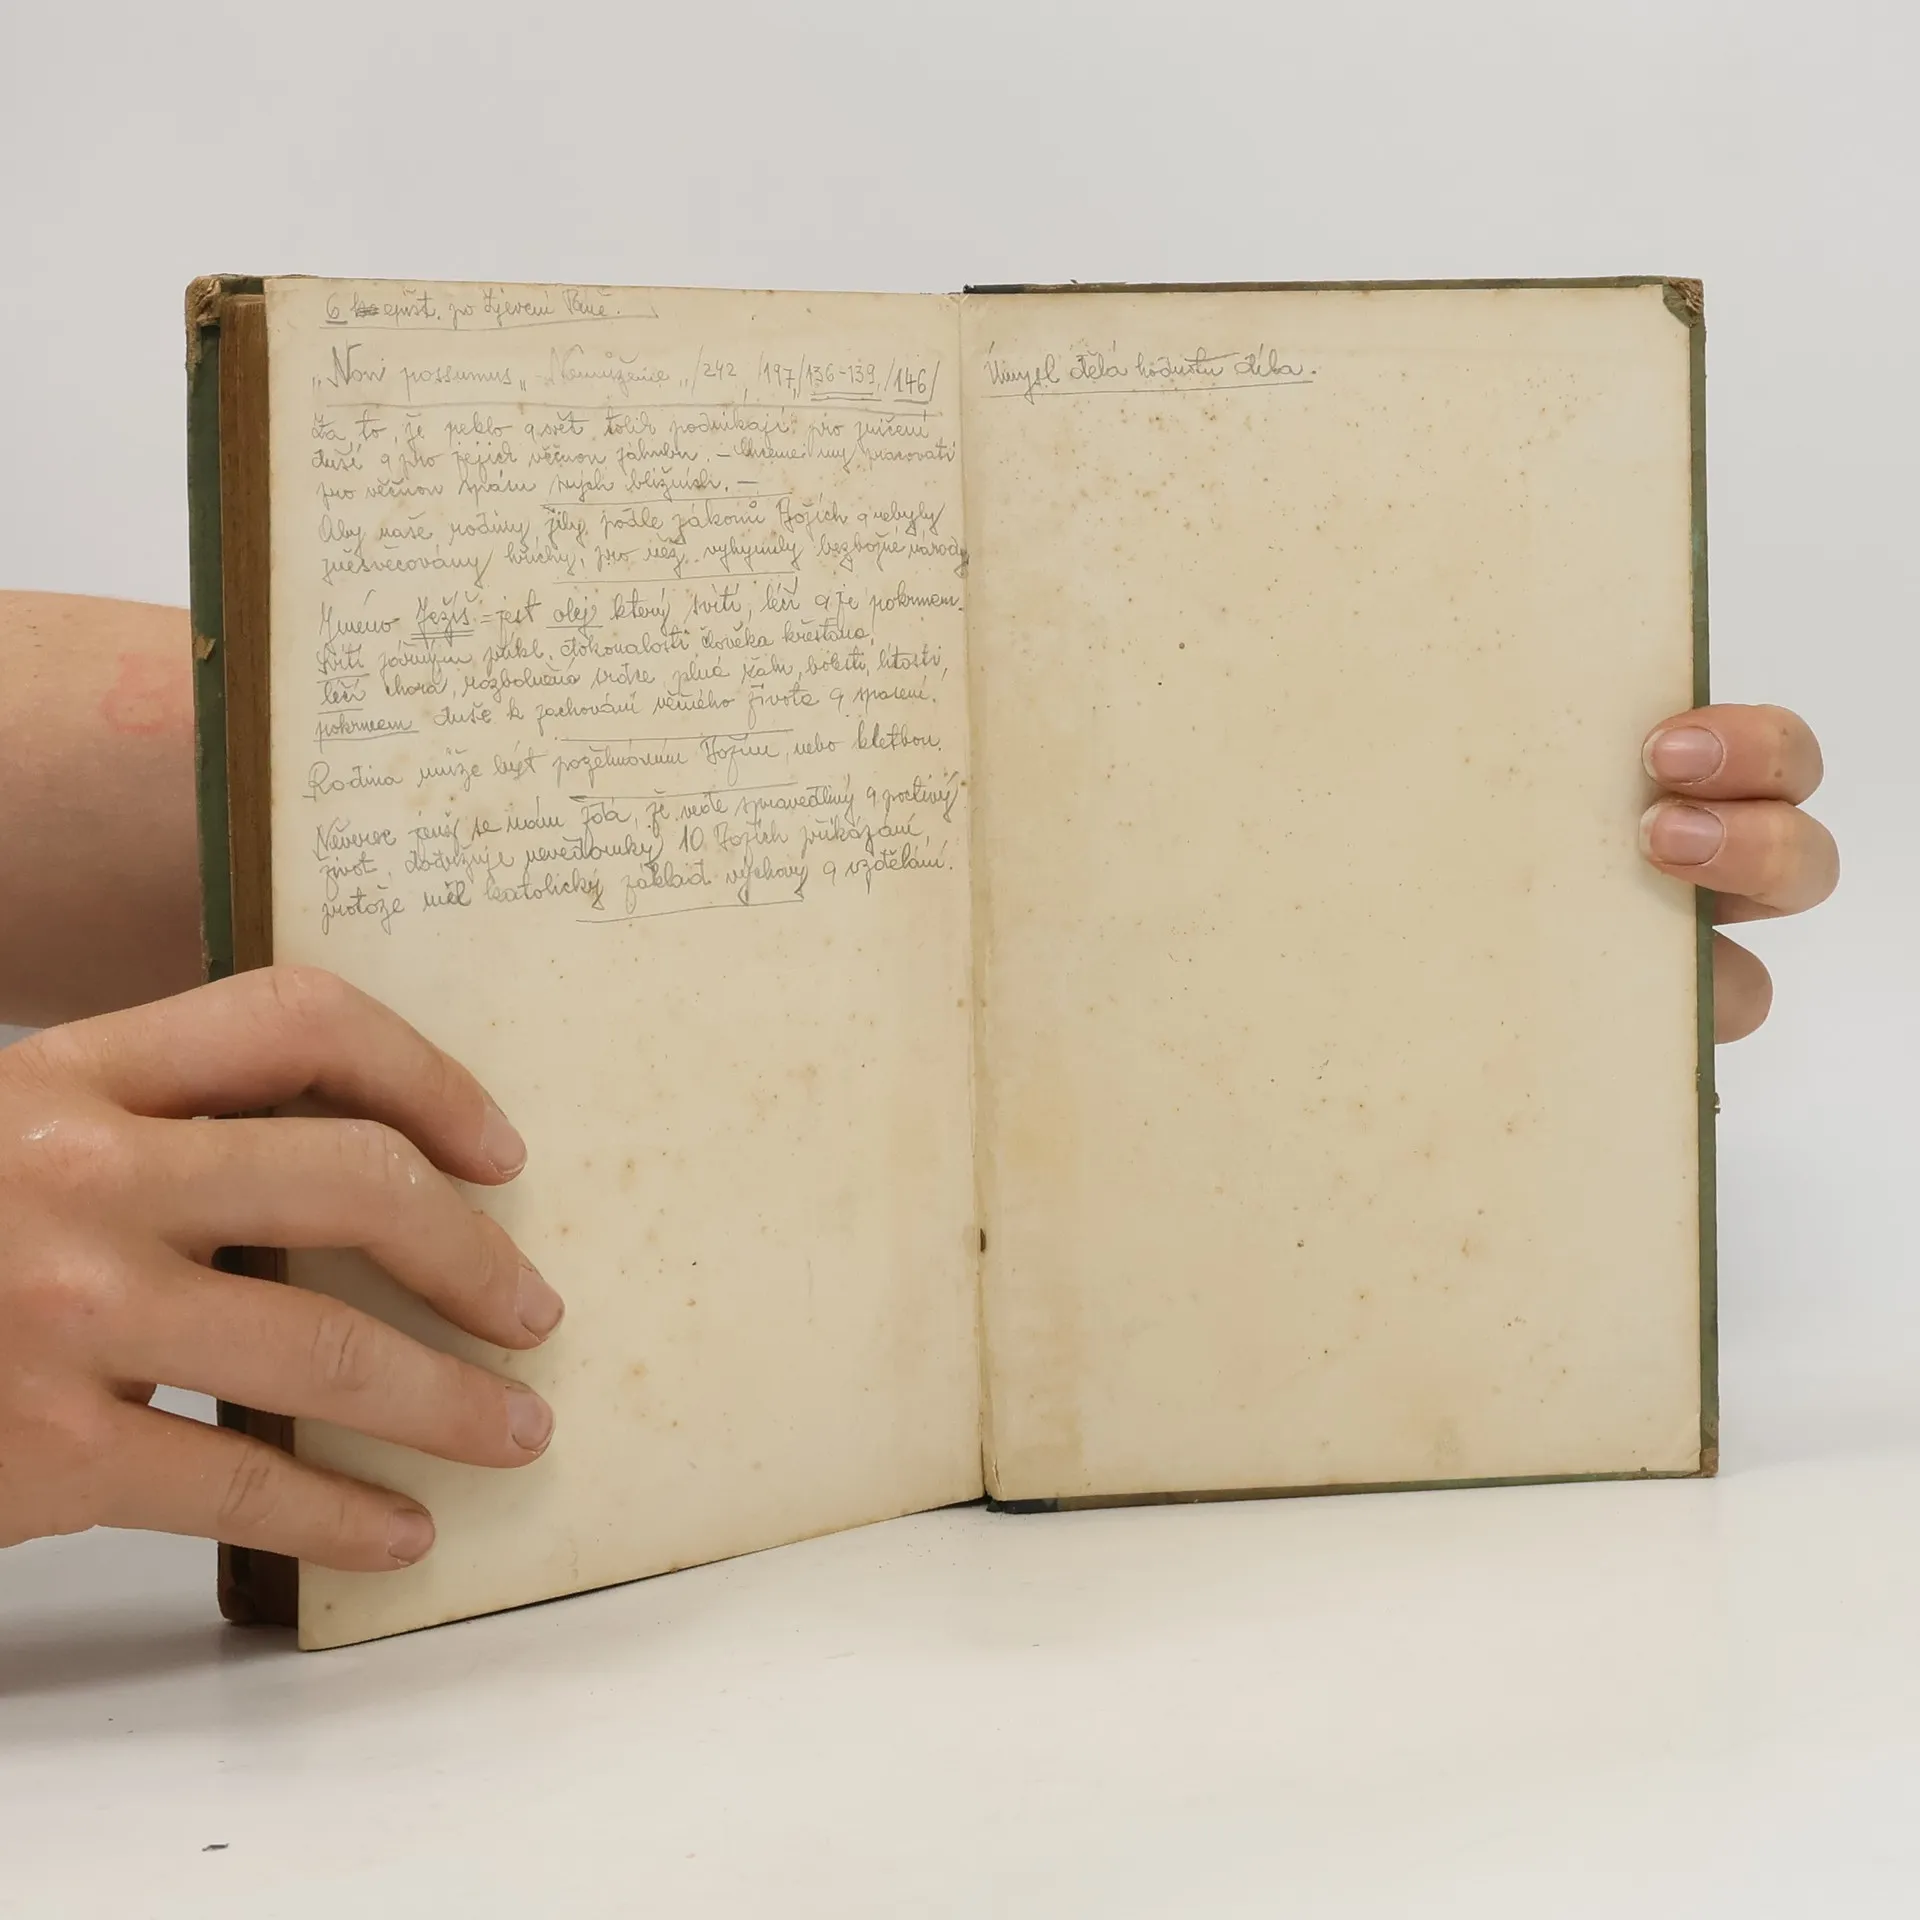 6 epišt. po Zjevení Páně.
"Non possumus" Nemůžeme "/242, /197,/136-139,/146/
Za to, že peklo a svět tolik podnikají pro zničení
duší a pro jejich věčnou záhubu. – Chceme my pracovati
pro věčnou spásu svých bližních. –
Aby naše rodiny žily podle zákonů Božích a nebyly
znesvěcovány hříchy, pro něž vyhynuly bezbožné národy
Jméno Ježíš = jest olej který svítí, léčí a je pokrmem.
Svítí jářným příkl. dokonalosti člověka křesťana,
léčí chorá, rozbolněná srdce, plná žalu, bolesti, lítosti,
pokrmem duše k zachování věčného života a spasení.
Rodina může být požehnáním Božím, nebo kletbou.
Nevěrec jenž se nám zdá, že vede spravedlivý a poctivý
život, dodržuje nevědomky 10 Božích přikázání,
protože měl katolický základ výchovy a vzdělání.
Úmysl dělá hodnotu díla.